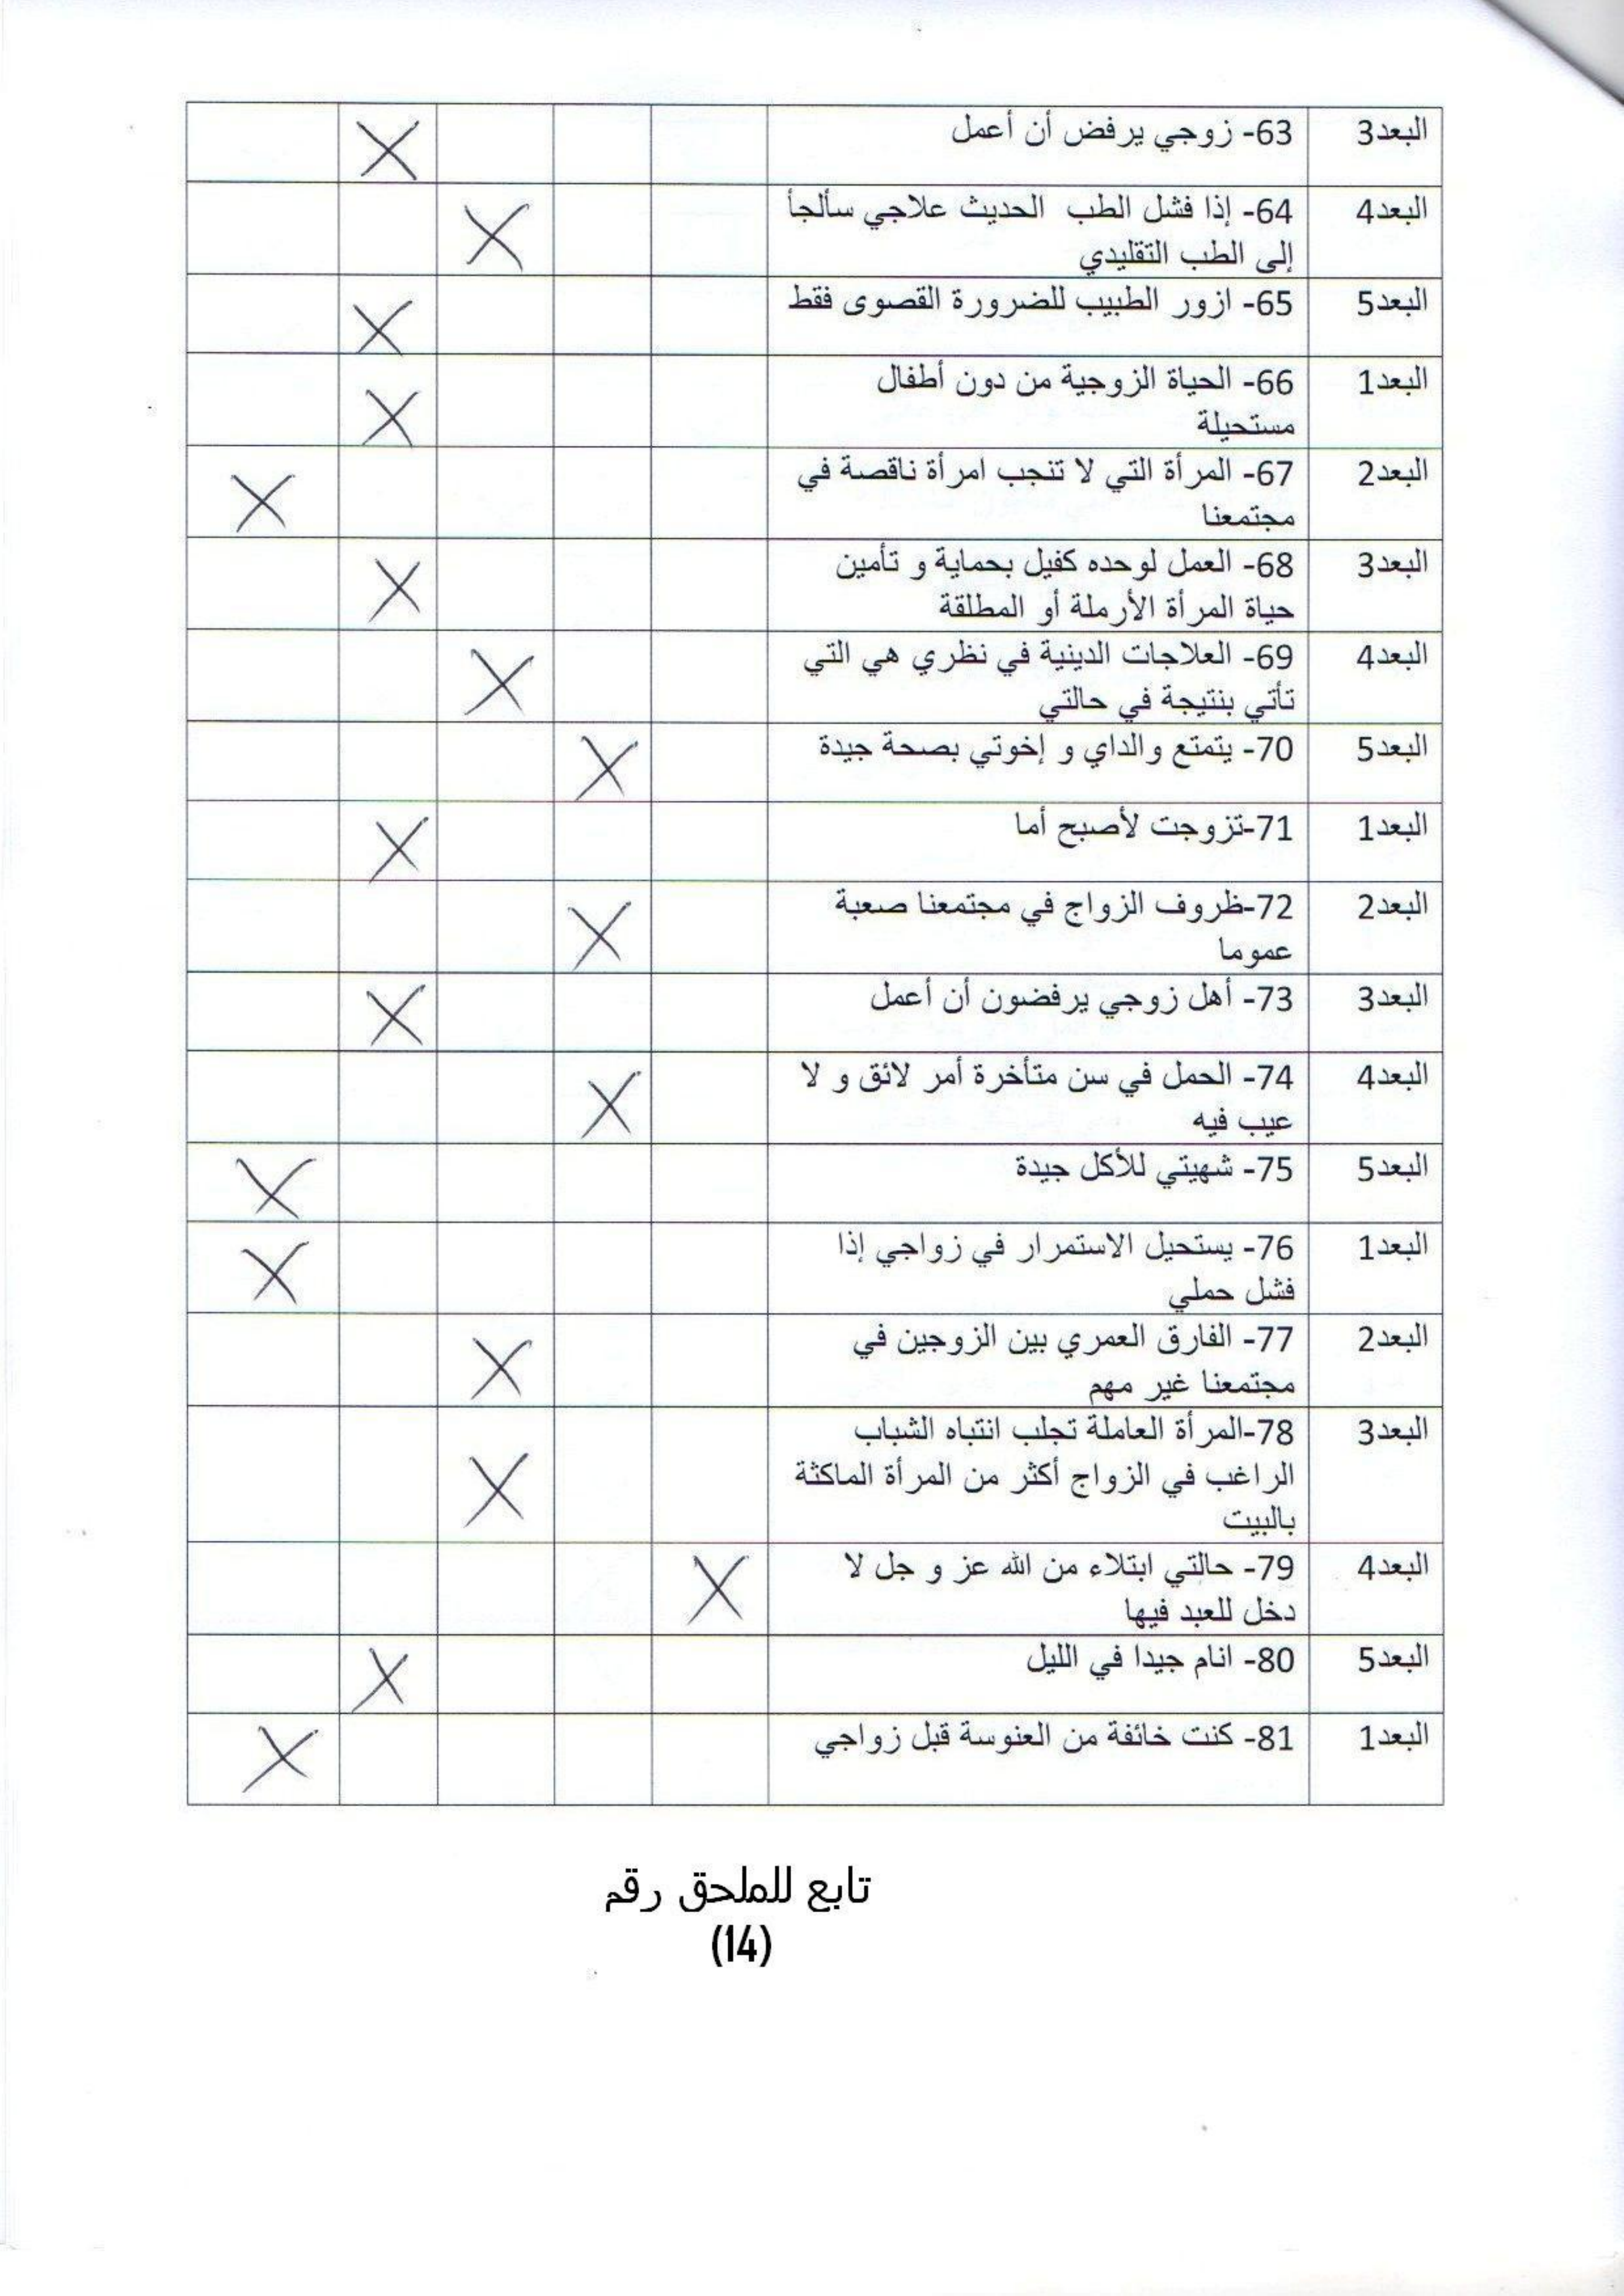 البعد3 63- زوجي يرفض أن أعمل X
البعد4 64- إذا فشل الطب الحديث علاجي سألجأ
إلى الطب التقليدي X
البعد5 65- ازور الطبيب للضرورة القصوى فقط X
البعد1 66- الحياة الزوجية من دون أطفال
مستحيلة X
البعد2 67- المرأة التي لا تنجب امرأة ناقصة في
مجتمعنا X
البعد3 68- العمل لوحده كفيل بحماية و تأمين
حياة المرأة الأرملة أو المطلقة X
البعد4 69- العلاجات الدينية في نظري هي التي
تأتي بنتيجة في حالتي X
البعد5 70- يتمتع والداي و إخوتي بصحة جيدة X
البعد1 71-تزوجت لأصبح أما X
البعد2 72-ظروف الزواج في مجتمعنا صعبة
عموما X
البعد3 73- أهل زوجي يرفضون أن أعمل X
البعد4 74- الحمل في سن متأخرة أمر لائق و لا
عيب فيه X
البعد5 75- شهيتي للأكل جيدة X
البعد1 76- يستحيل الاستمرار في زواجي إذا
فشل حملي X
البعد2 77- الفارق العمري بين الزوجين في
مجتمعنا غير مهم X
البعد3 78-المرأة العاملة تجلب انتباه الشباب
الراغب في الزواج أكثر من المرأة الماكثة
بالبيت X
البعد4 79- حالتي ابتلاء من الله عز و جل لا
دخل للعبد فيها X
البعد5 80- انام جيدا في الليل X
البعد1 81- كنت خائفة من العنوسة قبل زواجي X
تابع للملحق رقم
(14)